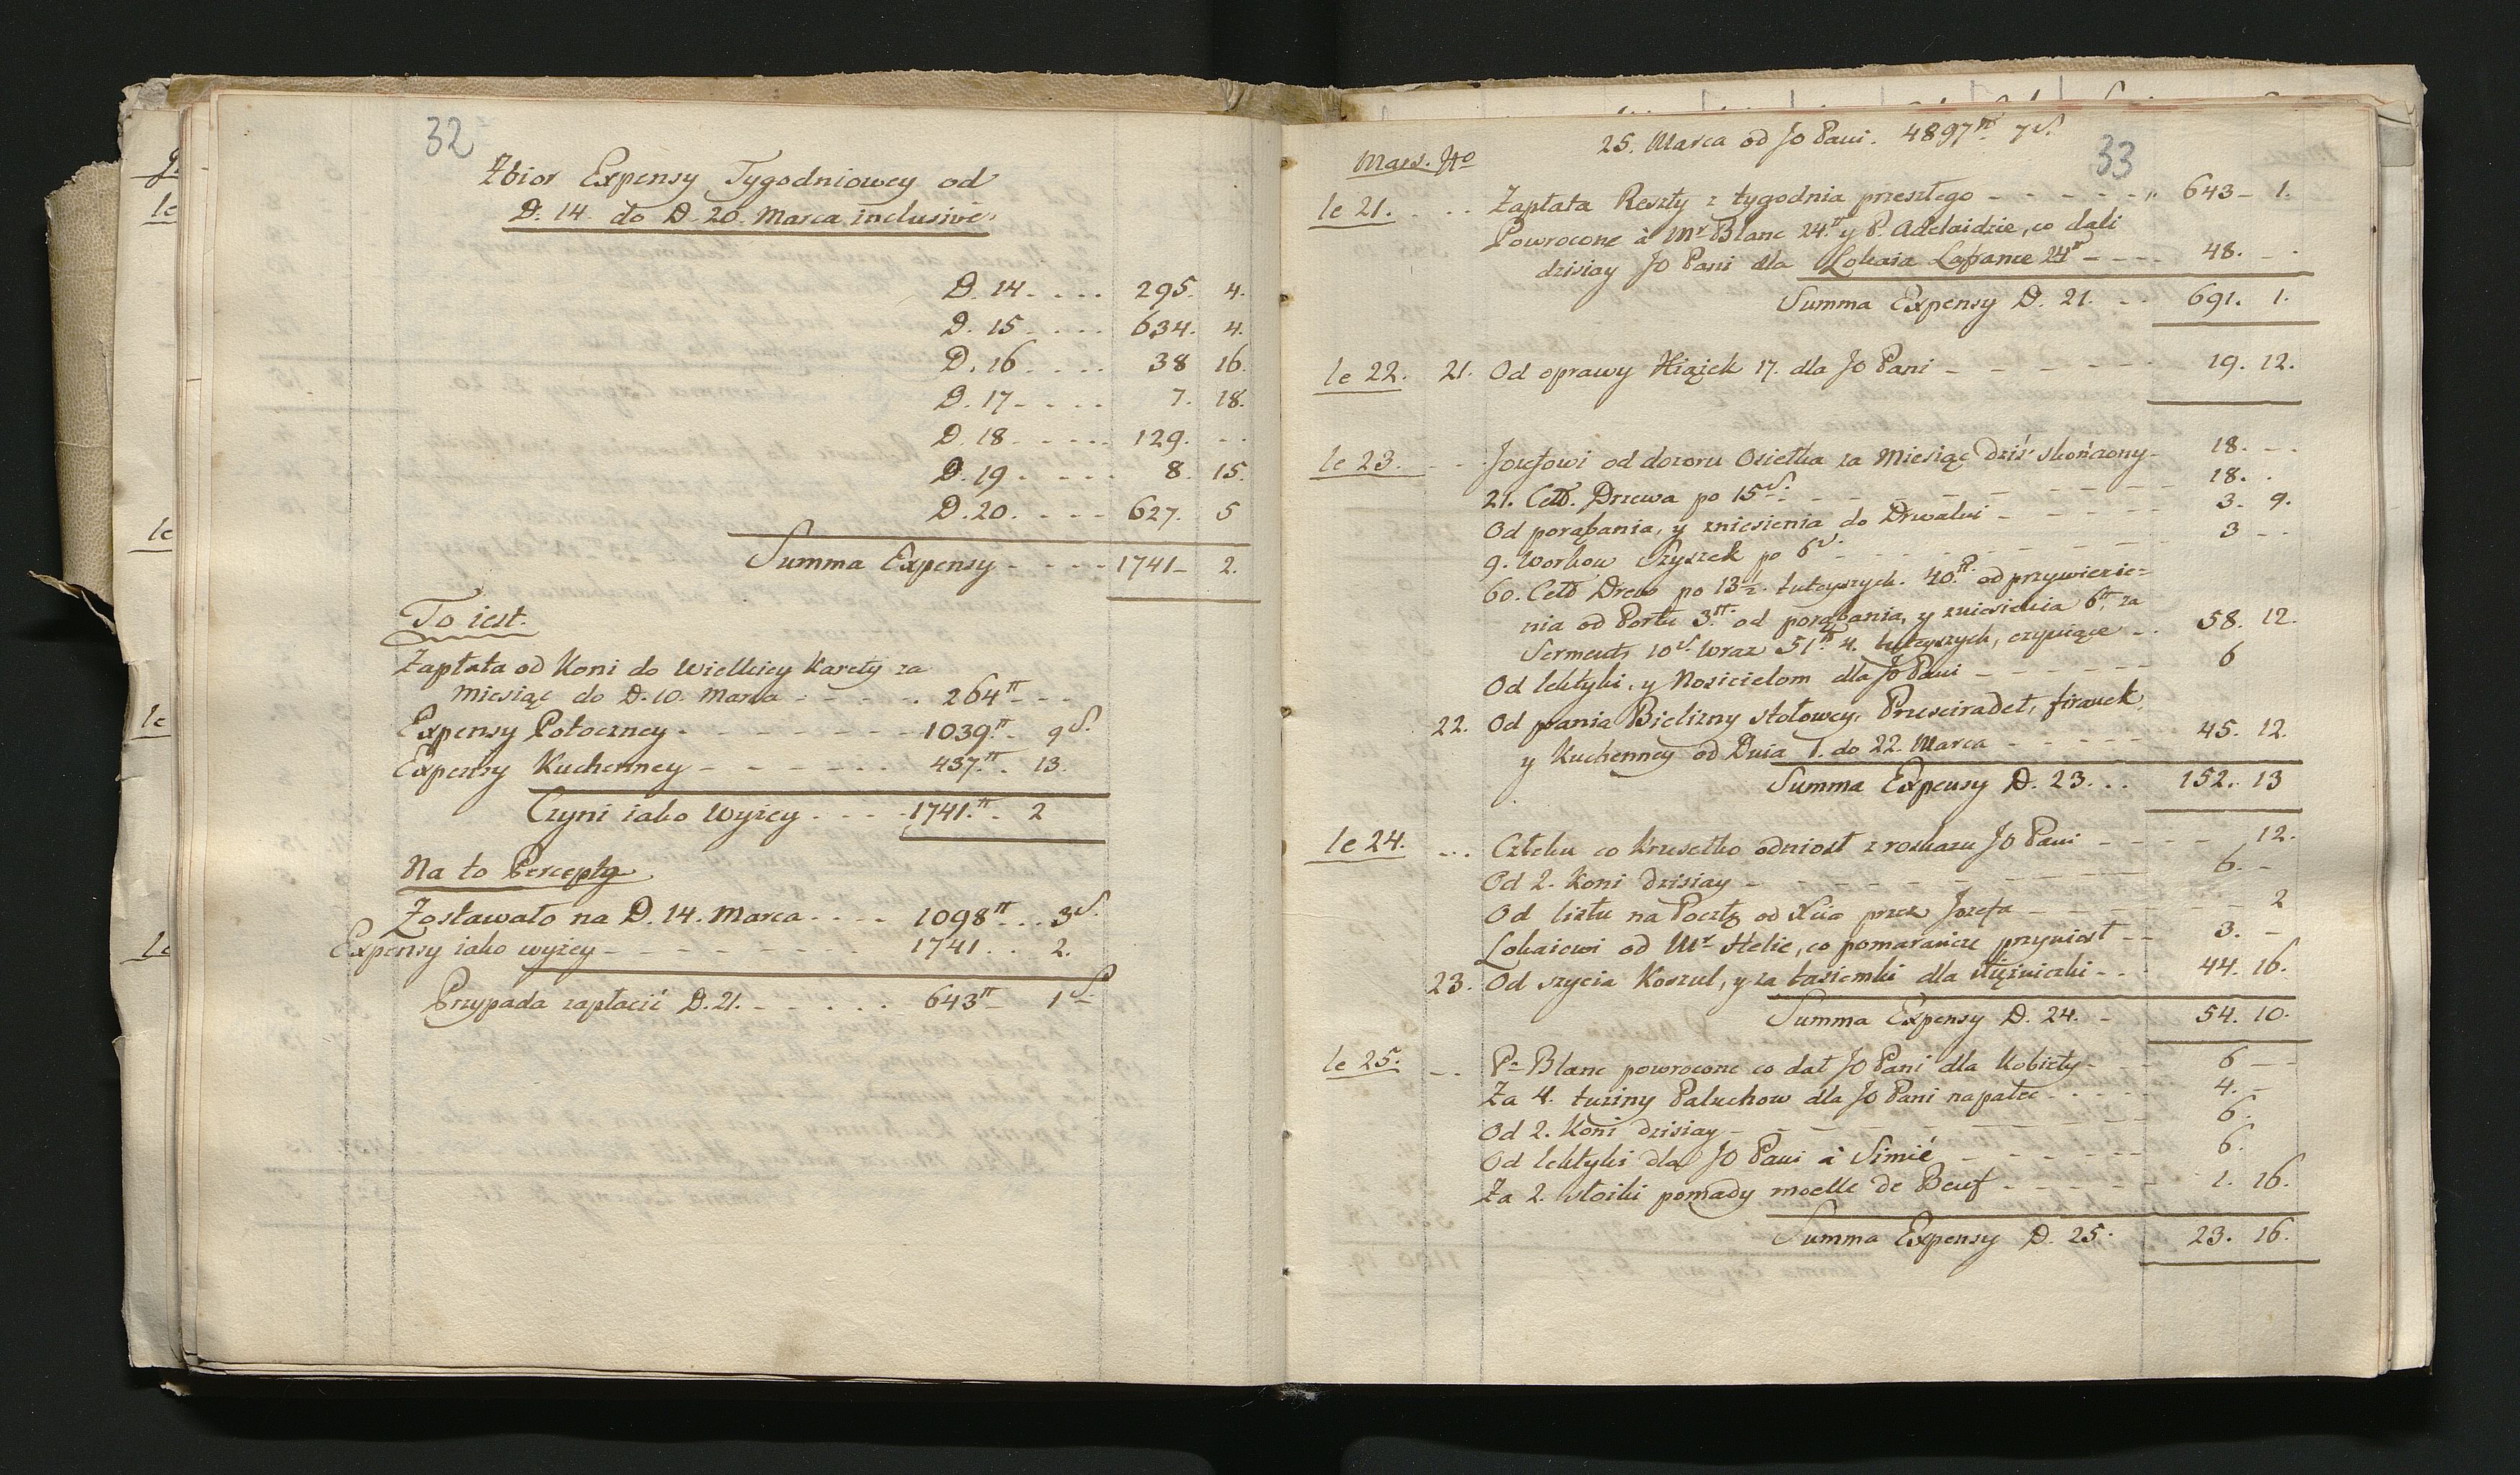 32
Zbior Expensy Tygodniowey od
D. 14. do D. 20. Marca inclusive.
D. 14. . . . 295. 4.
D. 15 . . . . 634. 4.
D. 16. . . . 38 16.
D. 17 - . . . 7. 18.
D. 18. . . . . 129. - -
D. 19 . . . . 8. 15.
D. 20. . . . 627. 5
Summa Expensy - - - - 1741 - 2.
To iest.
Zapłata od Koni do Wielkiey Karety za
miesiąc do D. 10. Marca - - - - . 264tt - - -
Expensy Potoczney - - - - - - - 1039tt - 9S.
Expensy Kuchenney - - - - . . 437.tt . 13.
Czyni iako Wyżey . . . . 1741.tt . 2
Na to Percepty
Zostawało na D. 14. Marca . . . . 1098tt . . . 3S.
Expensy iako wyżey - - - - - - - 1741 . . 2.
Przypada zapłacić D. 21. - - . . . . 643tt - 1S
33
25. Marca od JO Pani. 4897tt 7S.
Mars. No
le 21. . . . Zapłata Reszty z tygodnia przeszłego - - - - - " 643 - 1.
Powrocone à Mr Blanc 24.tt y P. Adelaidzie, co dali
dzisiay JO Pani dla Lokaia Lafrance 24tt - - - - 48. - -
Summa Expensy D. 21. - - 691. 1.
le 22. 21. Od oprawy Xiążek 17. dla JO Pani - - - - - - 19. 12.
le 23. - - Jozefowi od dozoru Osiełka za Miesiąc dziś skończony - 18. - -
21. Cetb. Drzewa po 15S. - - - - - - - - - - 18. .
Od porąbania, y zniesienia do Drwalni - - - - - - 3. 9.
9. Workow Szyszek po 6S. - - - - - - - - - 3 - -
60. Cetb Drew po 13½. tuteyszych. 40.tt. od przywiezie=
nia od Portu 3.tt. od porąbania, y zniesienia 6tt. za
Serment, 10S. wraz 51tt. 4. tuteyszych, czyniące - . 58. 12.
Od lektyki, y Nosicielom dla JO Pani - - - - - - 6
22. Od prania Bielizny stołowey, Przescieradeł, firanek,
y Kuchenney od Dnia 1. do 22. Marca - - - - - 45. 12.
Summa Expensy D. 23. . . 152. 13
le 24. ... Człeku co Krzesełko odniosł z roskazu JO Pani - - - - 12.
Od 2. Koni dzisiay - - - - - - - - - - - 6. -
Od listu na Pocztę od Xcia przez Jozefa - - - - - - - 2
Lokaiowi od Mr Helie, co pomarańcze przyniosł - - 3. -
23. Od szycia Koszul, y za tasiemki dla - - . 44. 16.
Summa Expensy D. 24. - 54. 10.
le 25. -- Pa Blanc powrocone co dał JO Pani dla Kobiety - - - 6 - -
Za 4. tuziny Paluchow dla JO Pani na palec . . . . - 4. -
Od 2. Koni dzisiay - - - - - - - - - - 6.
Od lektyki dla JO Pani à Simié - - - - - - 6.
Za 2. słoiki pomady moelle de Beuf - - - - - - 1. 16.
Summa Expensy D. 25. 23. 16.